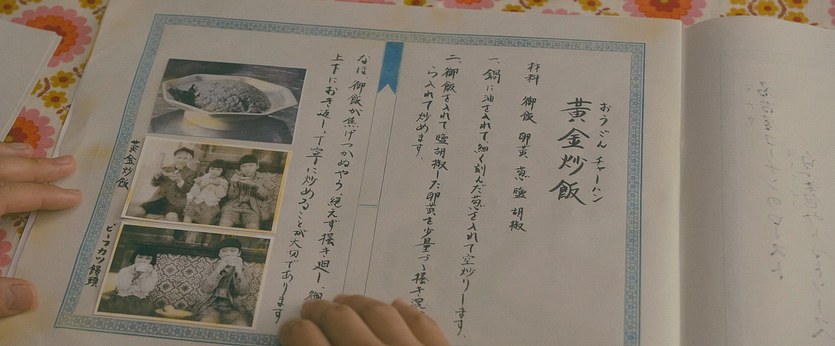 おうごん チャーハン
黃金炒飯
材料 御飯 卵黄 葱 鹽 胡椒
一、鍋に油を入れて細く刻んだ葱を入れて空炒りします。
二、御飯を入れて鹽胡椒した卵黄を少量づゝ掻き混
ら入れて炒めます。
なほ 御飯が焦げつかぬやう、絶えず掻き廻し、御
上下にむき返し、丁寧に炒めることが大切であります
黄金炒飯
ビーフカツ饅頭